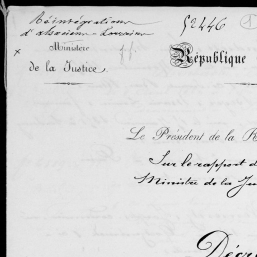 Réintégration
d'alsacien-Lorrain
52446
Ministère
de la Justice.
République
Le Président de la R
Sur le rapport d
Ministre de la Ju
Décr